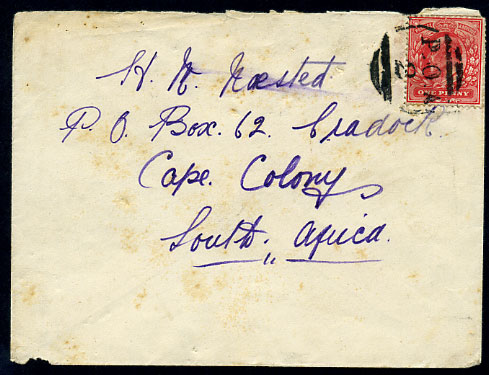 H. N. Næsted
P. O. Box. 62. Cradock.
Cape. Colony
South, Africa.
ONE PENNY